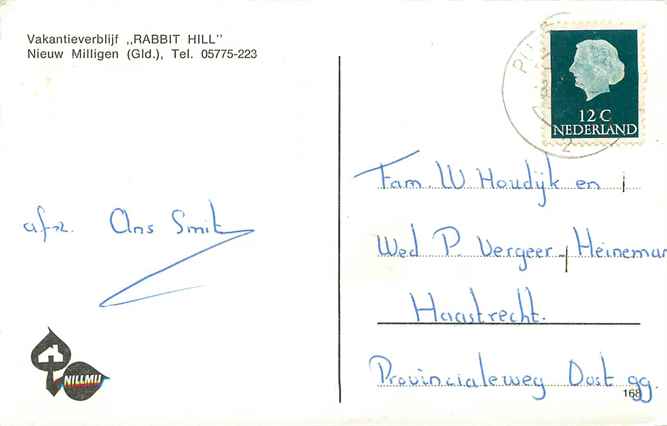 Vakantieverblijf „RABBIT HILL"
Nieuw Milligen (Gld.), Tel. 05775-223
afz. Ans Smit
12 C
NEDERLAND
2
Fam. W. Houdijk en
Wed P. Vergeer-Heineman
Haastrecht.
Provincialeweg Oost 99.
NILLMIJ
168